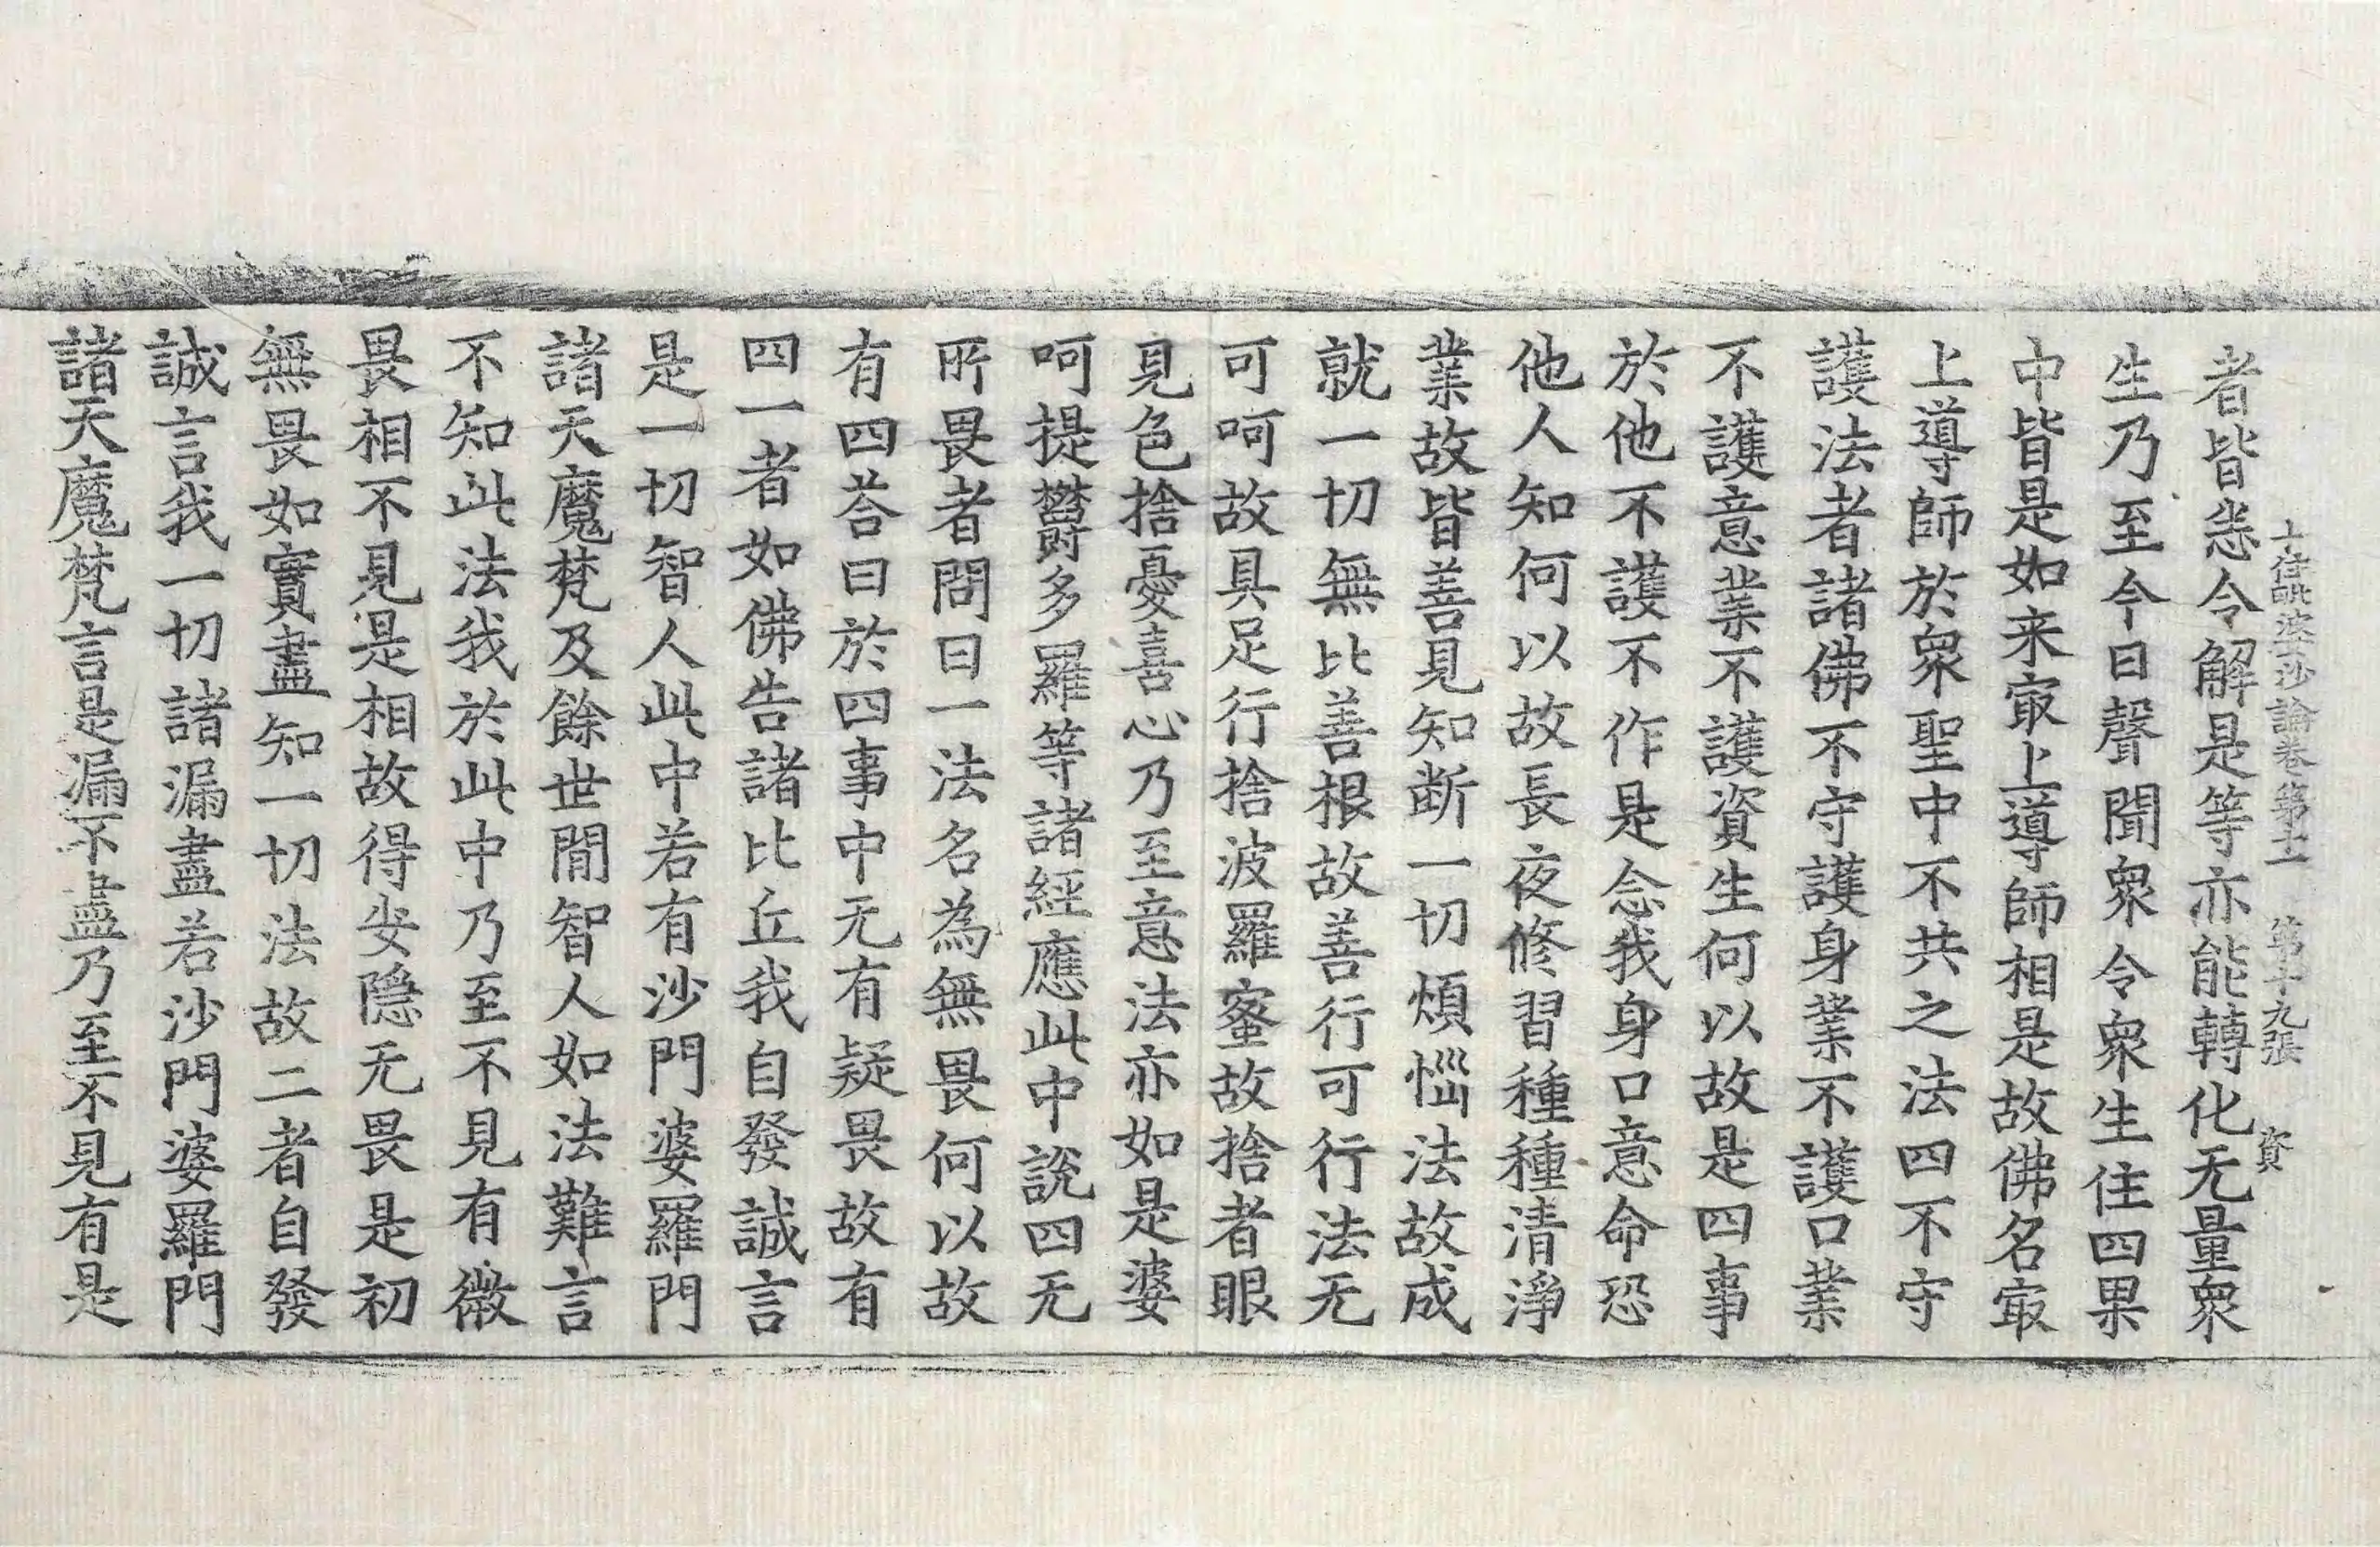 十住毗婆沙論卷第十一 第十九張 資
者皆悉令解是等亦能轉化无量衆
生乃至今日聲聞衆令衆生住四果
中皆是如来㝡上導師相是故佛名㝡
上導師於衆聖中不共之法四不守
護法者諸佛不守護身業不護口業
不護意業不護資生何以故是四事
於他不護不作是念我身口意命恐
他人知何以故長夜修習種種清淨
業故皆善見知断一切煩惱法故成
就一切無比善根故善行可行法无
可呵故具足行捨波羅蜜故捨者眼
見色捨憂喜心乃至意法亦如是婆
呵提欝多羅等諸經應此中說四无
所畏者問曰一法名為無畏何以故
有四荅曰於四事中无有疑畏故有
四一者如佛告諸比丘我自發誠言
是一切智人此中若有沙門婆羅門
諸天魔梵及餘世間智人如法難言
不知此法我於此中乃至不見有微
畏相不見是相故得安隠无畏是初
無畏如實盡知一切法故二者自發
誠言我一切諸漏盡若沙門婆羅門
諸天魔梵言是漏不盡乃至不見有是